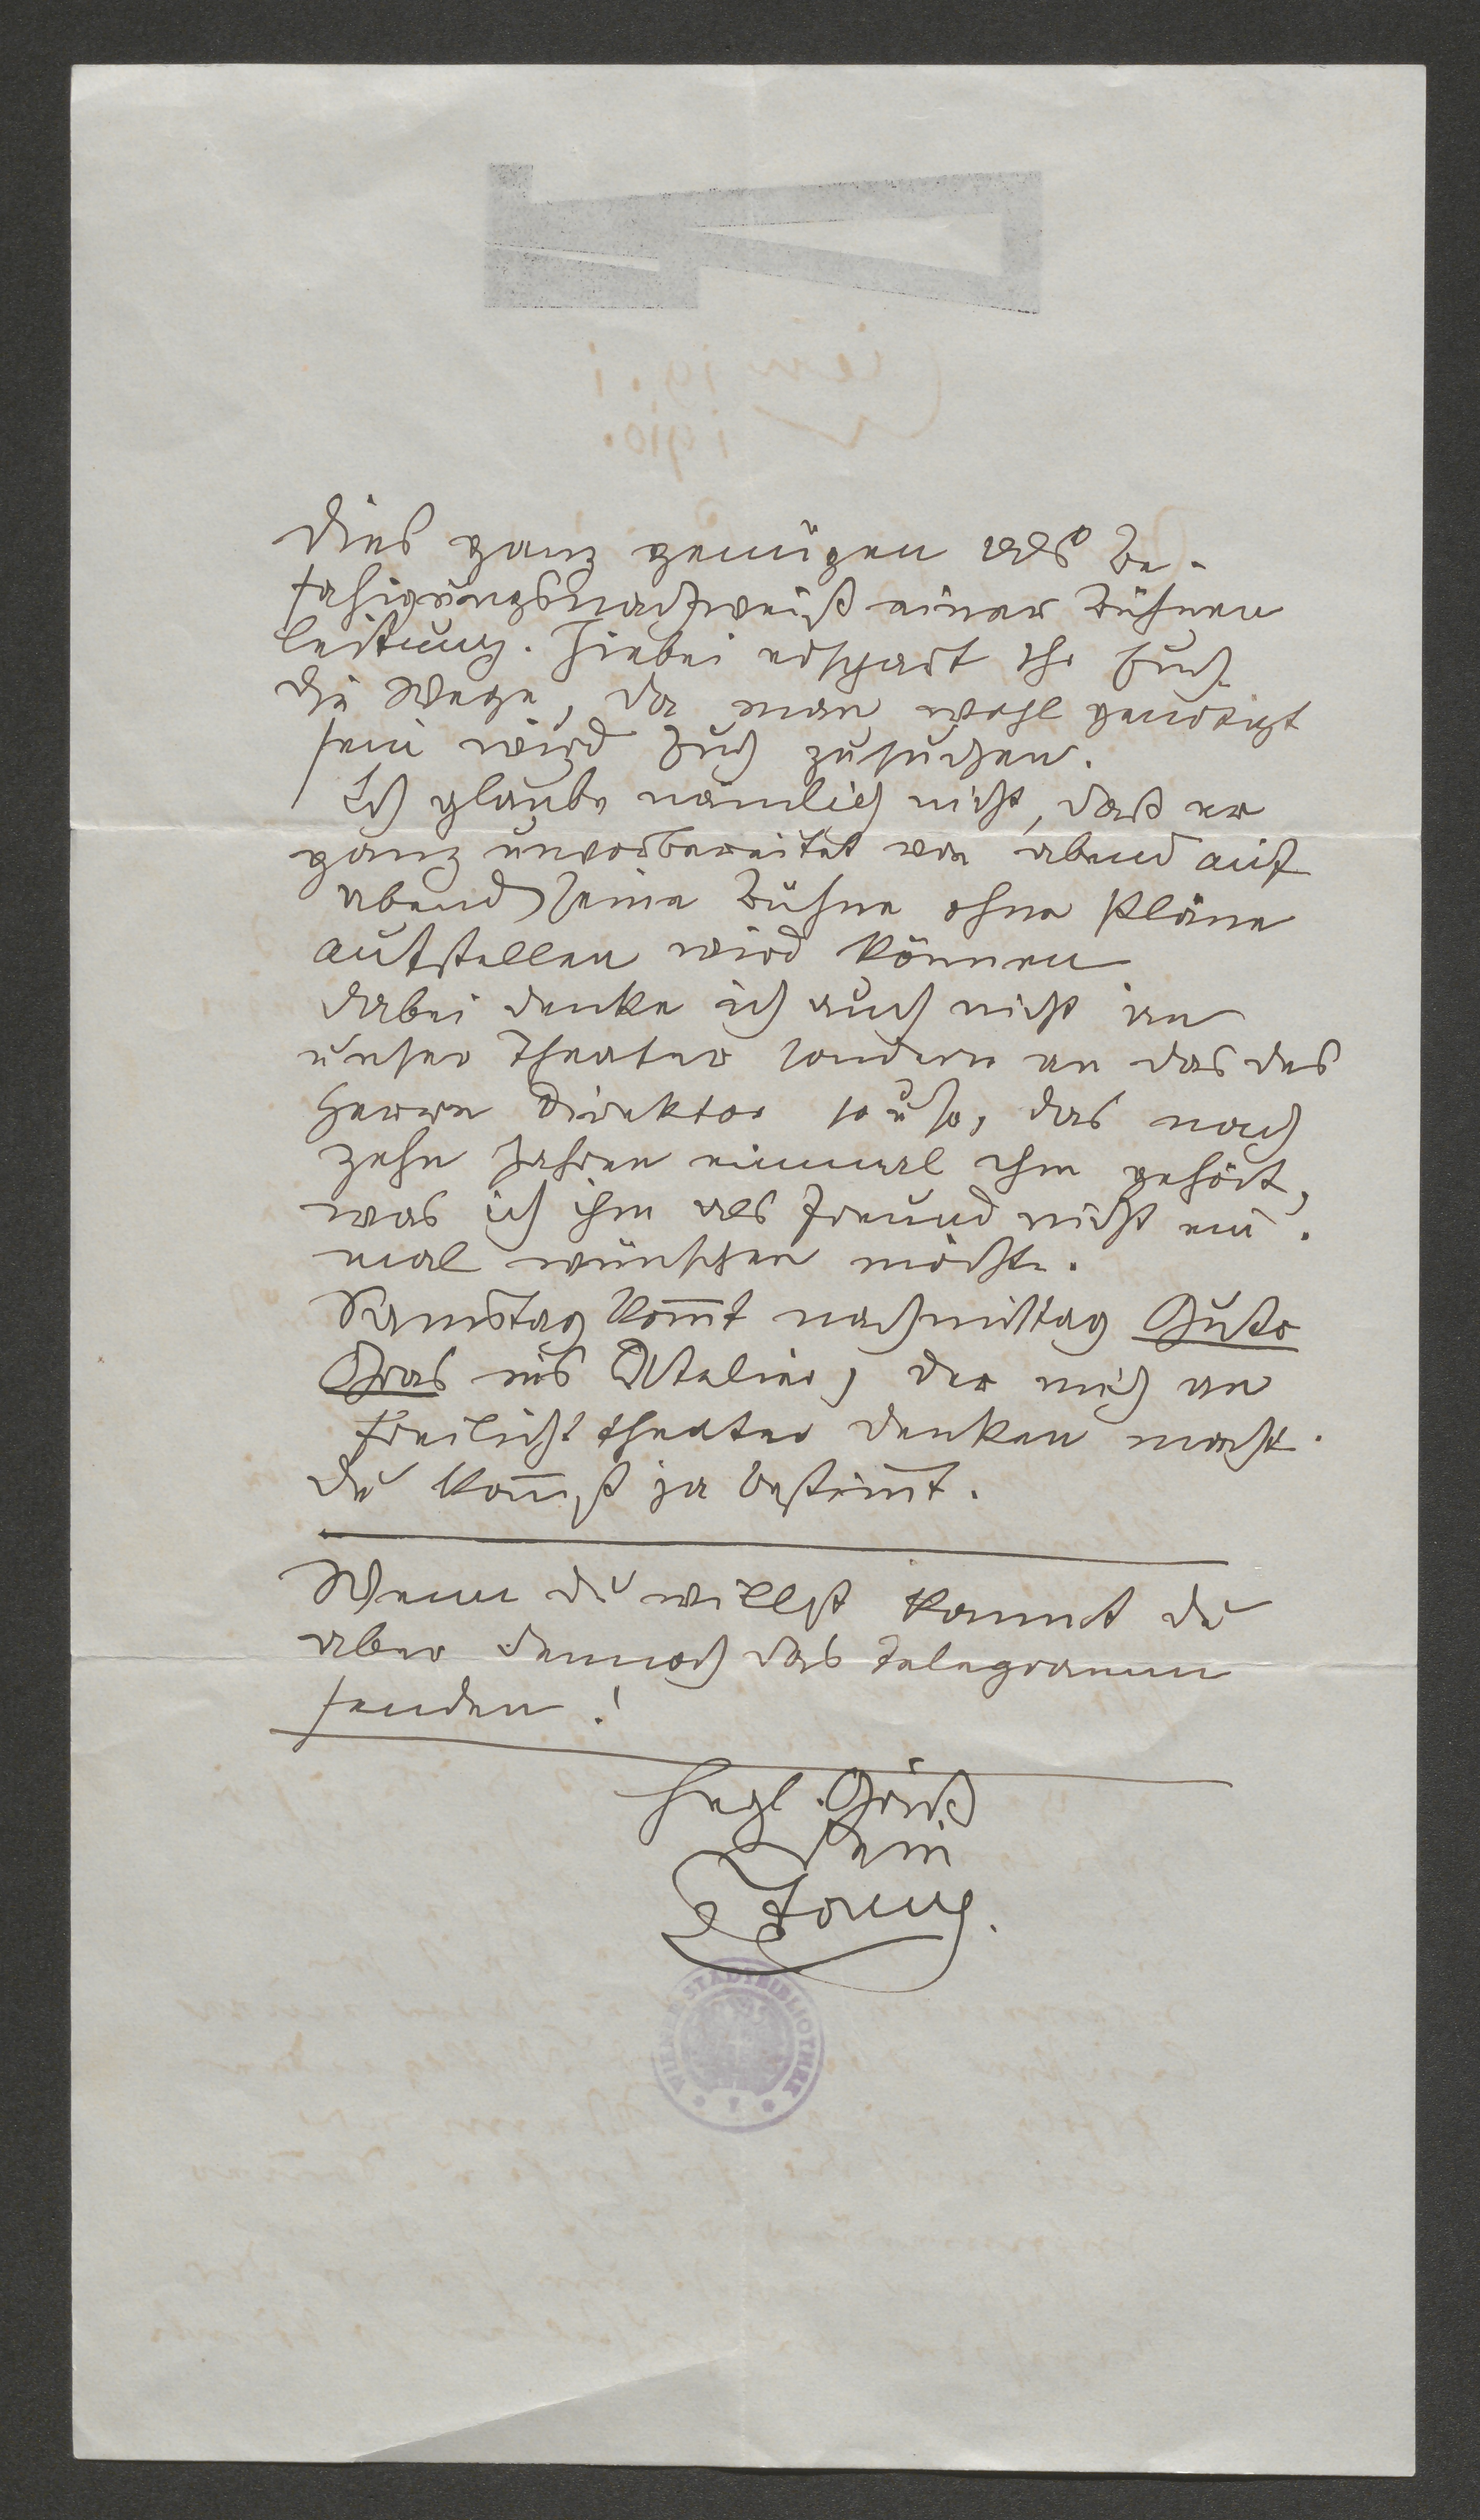 dies ganz genügen als Be-
fähigungsnachweiß einer Bühnen
leitung. Hiebei erspart Ihr Euch
die Wege, da man wohl genötigt
sein wird Euch zusuchen.
Ich glaube nämlich nicht, daß er
ganz unvorbereitet von abend auf
abend seine Bühne ohne Pläne
aufstellen wird können
dabei denke ich auch nicht an
unser Theater sondern an das des
Herrn Direktor so u so, das nach
zehn Jahren einmal ihm gehört,
was ich ihm als Freund nicht ein-
mal wünschen möchte.
Samstag kom̅t nachmittag Gusto
Gras ins Atelier, der mich an
Freilichttheater denken macht.
du kom̅st ja bestim̅t.
Wenn du willst kannst du
aber dennoch das Telegramm
senden!
Hrzl. Gruß
Dein
WIENER STADTBIBLIOTHEK
Wien 19. I
1910.